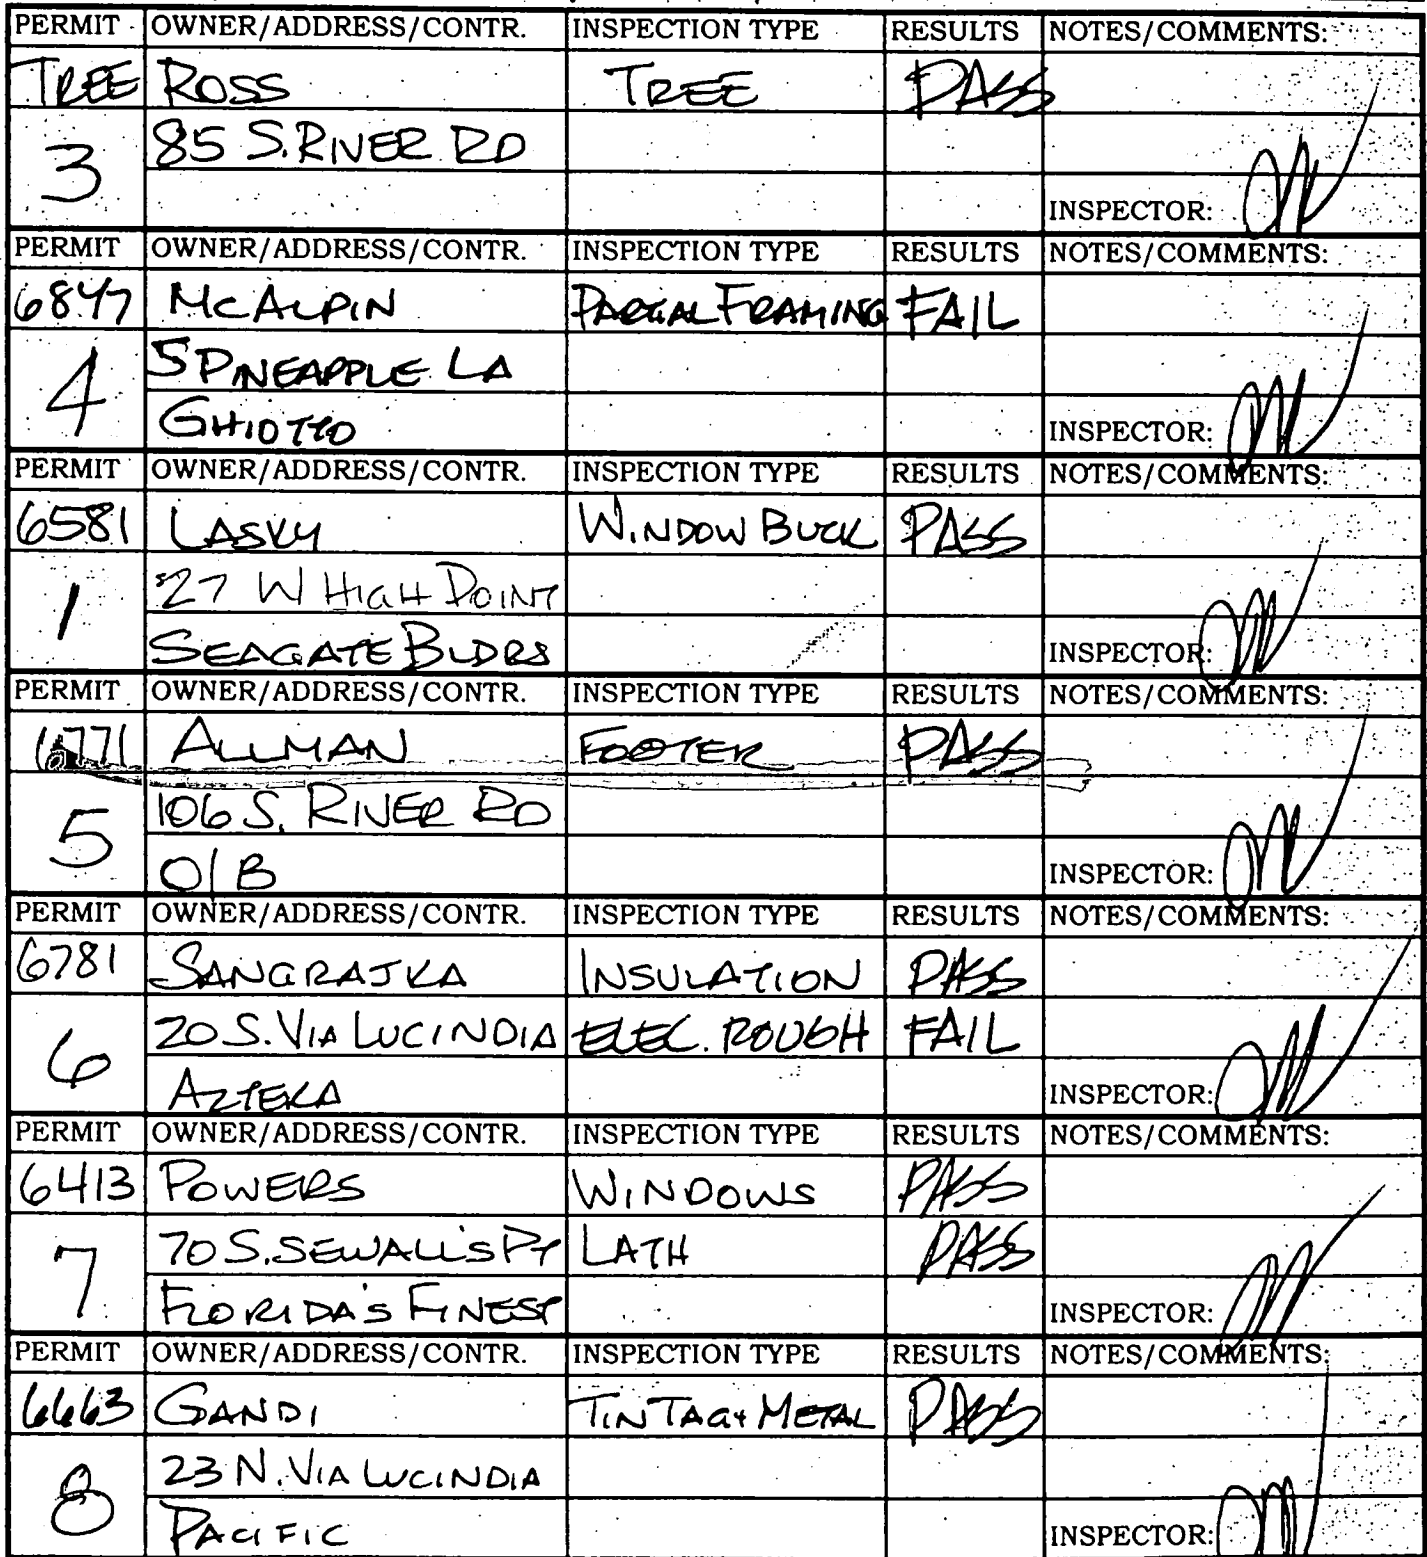 PERMIT OWNER/ADDRESS/CONTR. INSPECTION TYPE RESULTS NOTES/COMMENTS:
TREE ROSS TREE PASS
3 85 S. RIVER RD
INSPECTOR:
PERMIT OWNER/ADDRESS/CONTR. INSPECTION TYPE RESULTS NOTES/COMMENTS:
6847 MCALPIN PARTIAL FRAMING FAIL
4 5 PINEAPPLE LA
GHIOTTO INSPECTOR:
PERMIT OWNER/ADDRESS/CONTR. INSPECTION TYPE RESULTS NOTES/COMMENTS:
6581 LASKY WINDOW BUCK PASS
1 27 W HIGH POINT
SEAGATE BLDRS INSPECTOR:
PERMIT OWNER/ADDRESS/CONTR. INSPECTION TYPE RESULTS NOTES/COMMENTS:
6771 ALLMAN FOOTER PASS
5 106 S. RIVER RD
O/B INSPECTOR:
PERMIT OWNER/ADDRESS/CONTR. INSPECTION TYPE RESULTS NOTES/COMMENTS:
6781 SANGRAJKA INSULATION PASS
6 20 S. VIA LUCINDIA ELEC. ROUGH FAIL
AZTEKA INSPECTOR:
PERMIT OWNER/ADDRESS/CONTR. INSPECTION TYPE RESULTS NOTES/COMMENTS:
6413 POWERS WINDOWS PASS
7 70 S. SEWALL'S PT LATH PASS
FLORIDA'S FINEST INSPECTOR:
PERMIT OWNER/ADDRESS/CONTR. INSPECTION TYPE RESULTS NOTES/COMMENTS:
6663 GANDI TIN TAG+ METAL PASS
8 23 N. VIA LUCINDIA
PACIFIC INSPECTOR: